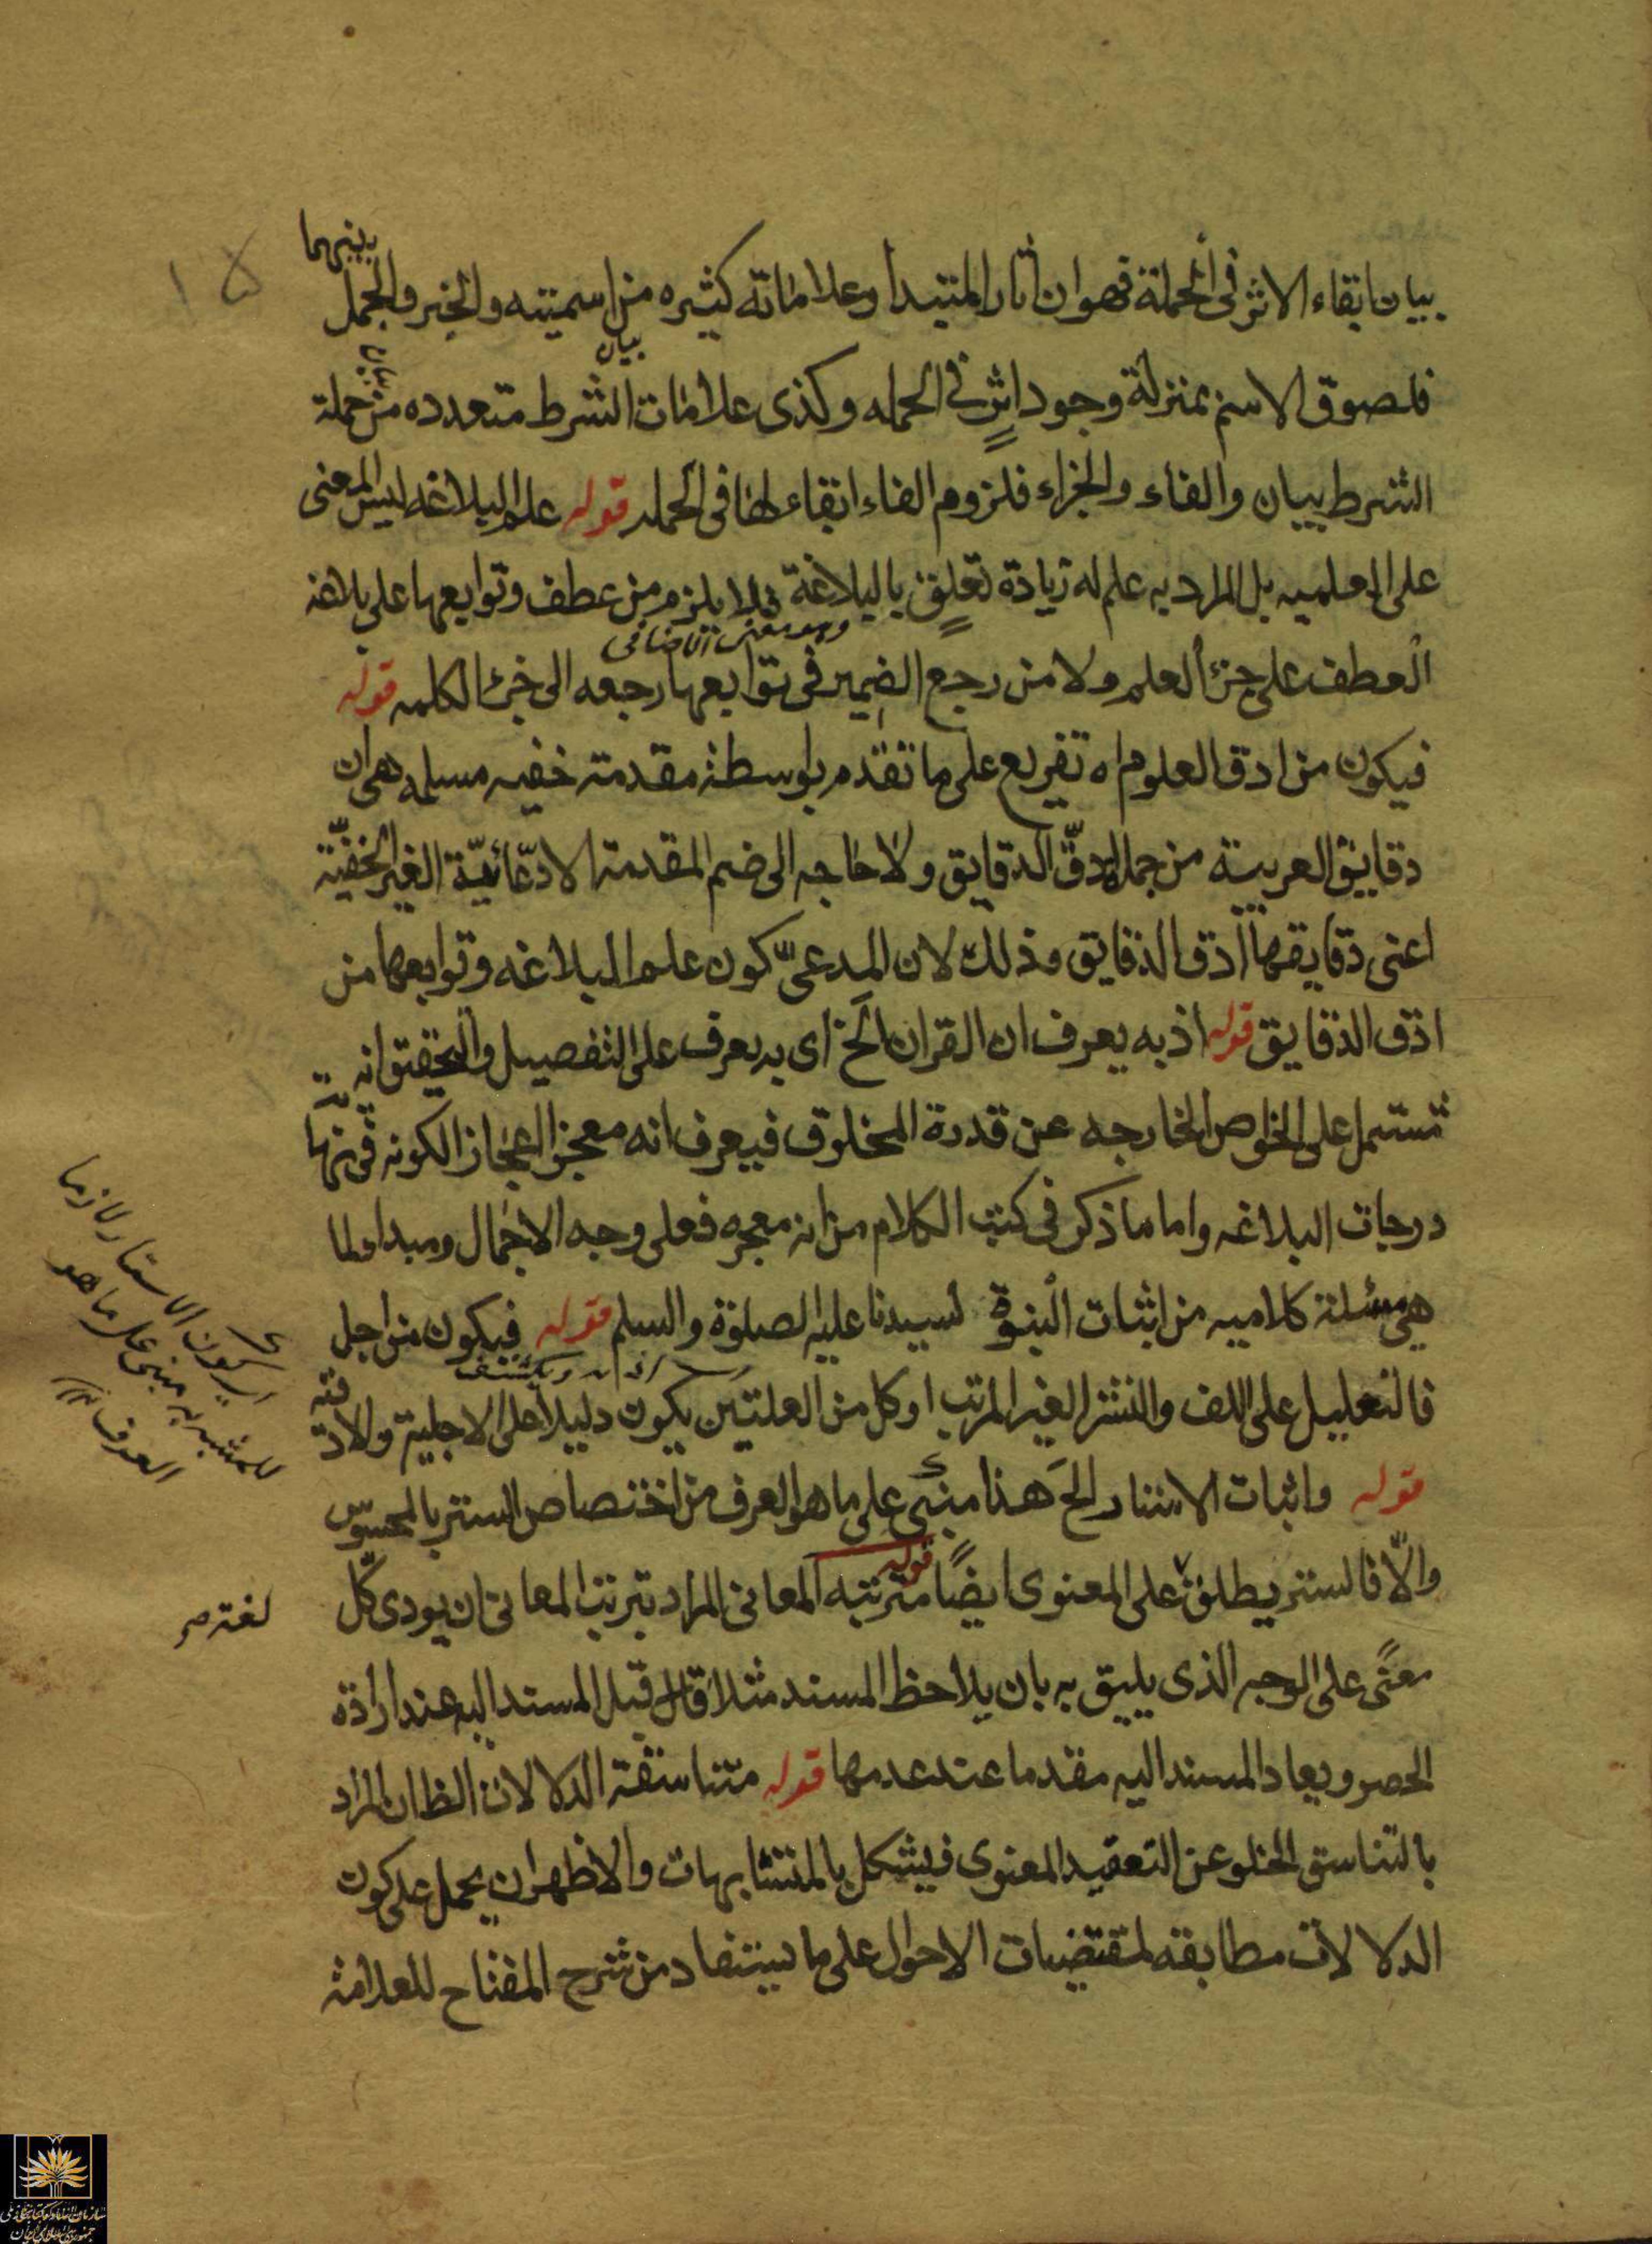 بينهما
بيان ابقاء الاثر فى الجملة فهو ان اثار المبتدا وعلاماته كثيره من اسميته والخبر والجمل
فلصوق الاسم بمنزلة وجود اثرٍ فى الجمله وكذى علامات الشرط متعدده من جملة
بيان
الشرط بيان والفاء والجزاء فلزوم الفاء ابقاء لها فى الجمله قوله علم البلاغه ليس المعنى
على العلميه بل المراد به علم له زيادة تعلق بالبلاغة فلا يلزم من عطف وتوابعها على بلاغه
وهو معنى اضافى
العطف على جزأ العلم ولا من رجع الضمير فى توابعها رجعه الى جزء الكلمه قوله
فيكون من ادق العلوم اه تفريع على ما تقدم بواسطة مقدمته خفيه مسلمه هى ان
دقايق العربية من جملة ادقّ الدقايق ولا حاجه الى ضم المقدمة الادّعائيّة الغير الخفيّة
اعنى دقايقها ادق الدقايق وذلك لان المدعىّ كون علم البلاغه وتوابعها من
ادق الدقايق قوله اذ به يعرف ان القران الخ اى به يعرف على التفصيل والتحقيق انه
تشتمل على الخواص الخارجه عن قدرة المخلوق فيعرف انه معجز اعجاز الكونه فى نهاية
درجات البلاغه واما ما ذكر فى كتب الكلام من انه معجزه فعلى وجه الاجمال ومبدا لما
هى مسئلة كلاميه من اثبات النبوة لسيدنا عليه الصلوة والسلم قوله فيكون من اجل
فالتعليل على اللف والنشر الغير المرتب او كل من العلتين يكون دليلا على الاجلية والادقيه
قوله واثبات الاستار الخ هذا مبنىّ على ما هو العرف من اختصاص الستر بالمحسوس
والّا فالستر يطلق على المعنوى ايضًا قوله مترتبه المعانى المراد بترتب المعانى ان يودى كل
معنًى على الوجه الذى يليق به بان يلاحظ المسند مثلا قبل المسند اليه عند ارادة
الحصر ويعاد المسند اليه مقدما عند عدمها قوله متناسقة الدلالات الظ ان المراد
بالتناسق الخلو عن التعقيد المعنوى فيشكل بالمتشابهات والاظهر ان يحمل على كون
الدلالات مطابقه لمقتضيات الاحوال على ما يستفاد من شرح المفتاح للعلامة
اى كون الاستار لازما
للمشبه به مبنى على ما هو
العرف
لغة ص